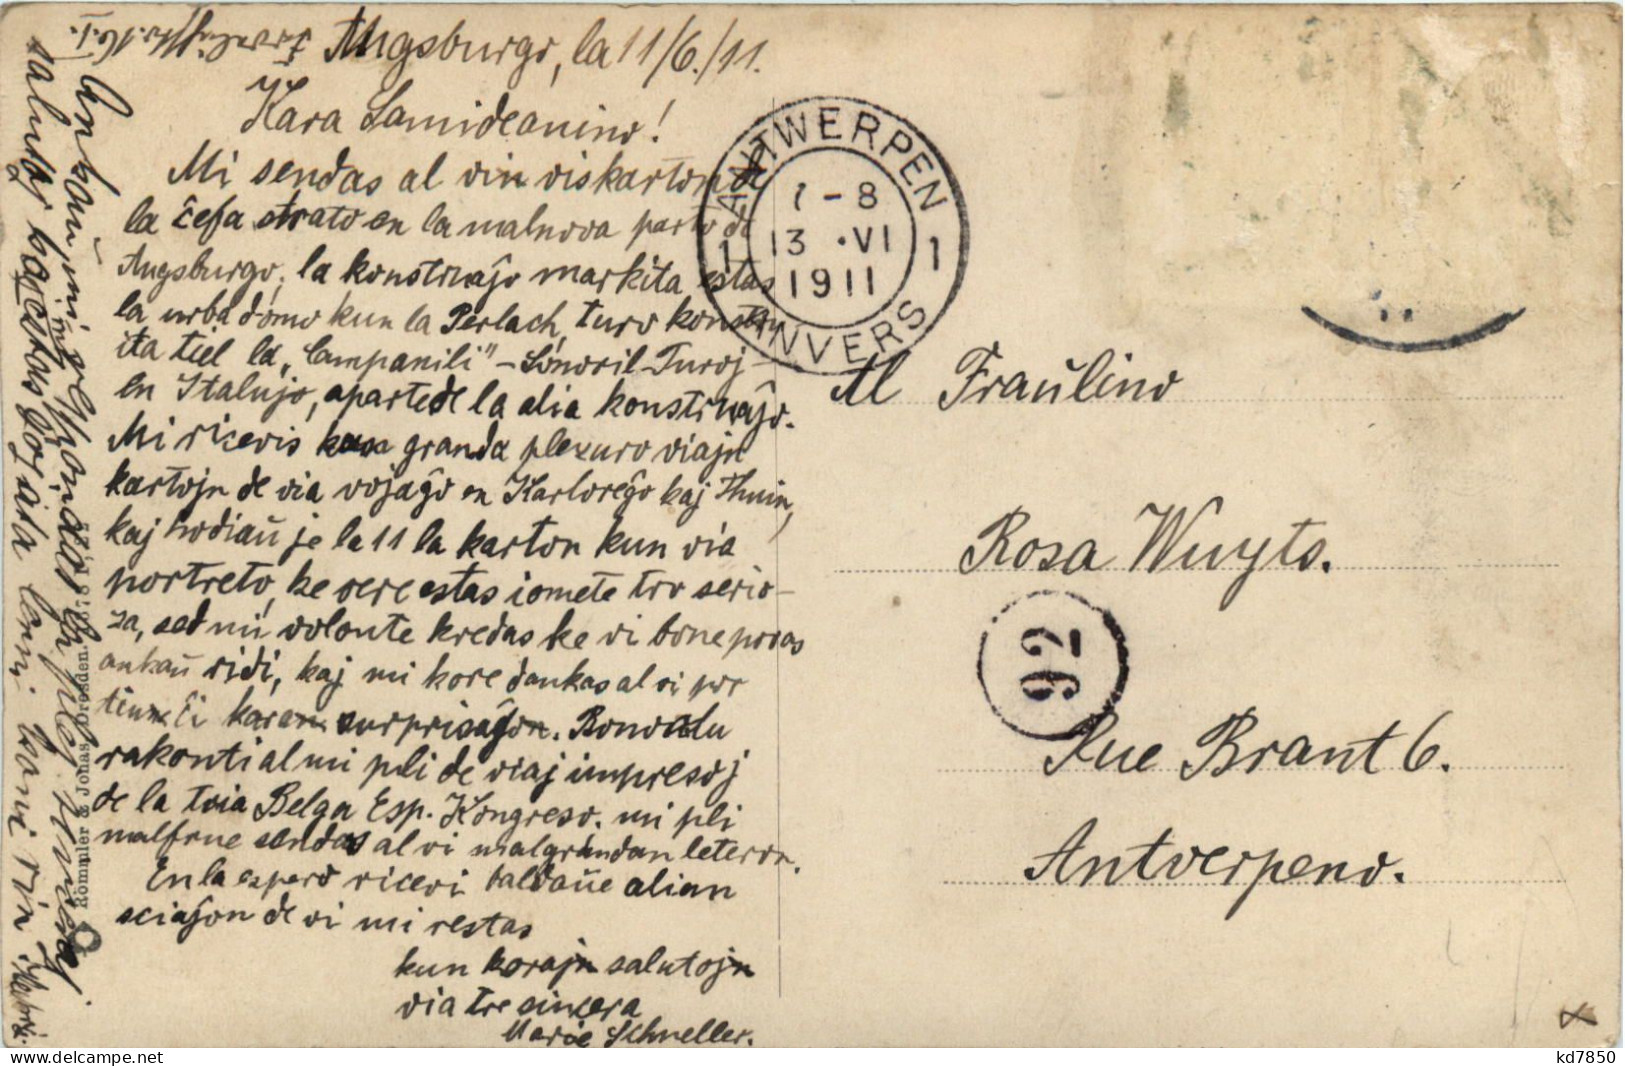 Augsburgo, la 11/6./11.
Kara Samideanino!
Mi sendas al vin viskarton de
la ĉefa strato en la malnova parto de
Augsburgo, la konstruaĵo markita estas
la urba domo kun la Perlach, turo konstru
ita tiel la „Campanili" - Sonoril-Turoj -
en Italujo, aparte de la alia konstruaĵo.
Mi ricevis kun granda plezuro viajn
kartojn de via vojaĝo en Karloreĝo kaj Thuin,
kaj hodiaŭ je la 11 la karton kun via
portreto, ke vere estas iomete tro serio-
za, sed mi volonte kredas ke vi bone povas
ankaŭ ridi, kaj mi kore dankas al vi por
tiun ĉi karan surprisaĵon. Bonvolu
rakonti al mi pli de viaj impresoj
de la tria Belga Esp. Kongreso. mi pli
malfrue sendas al vi malgrandan leteron.
En la espero ricevi baldaŭe alian
sciaĵon de vi mi restas
kun korajn salutojn
via tre sincera
Marie Schneller.
Ankaŭ mi
salutas
vin
Römmler & Jonas, Dresden.
ANTWERPEN
7-8
13 ·VI
1911
1 1
ANVERS
Al Fraŭlino
Rosa Wuyts.
92
Rue Brant 6.
Antverpeno.
x
kd7850